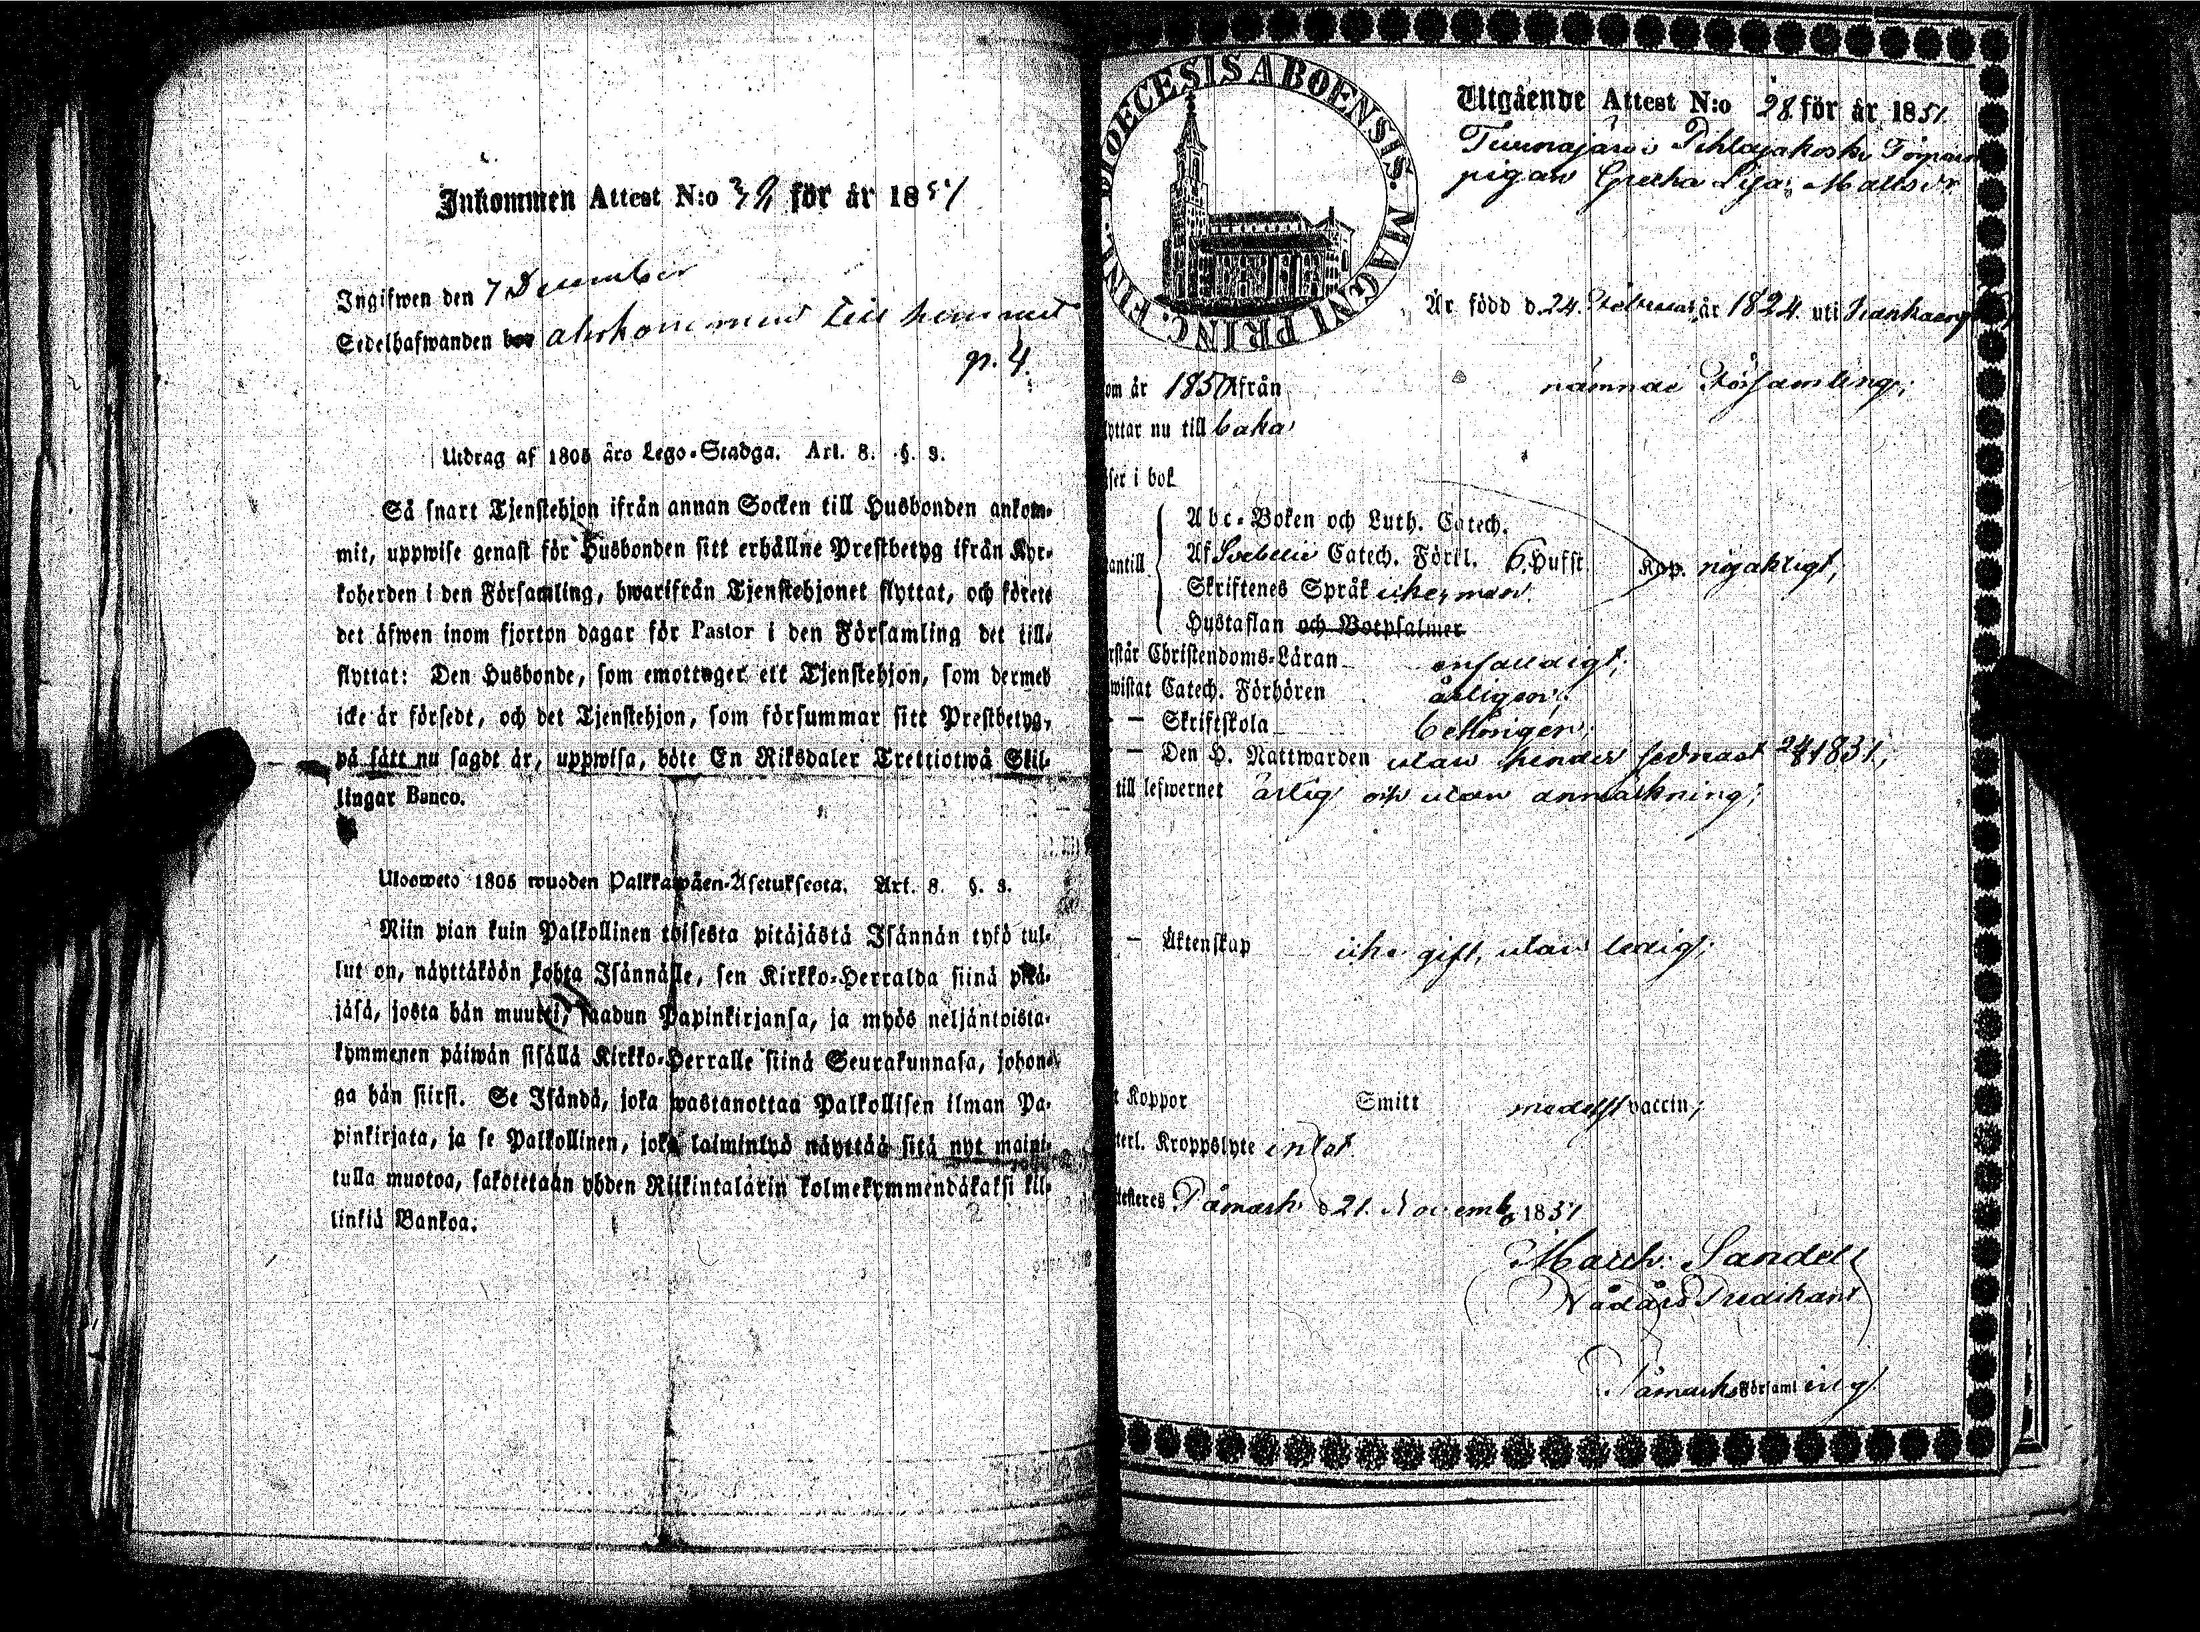 Inkommen Attest N:o 32 för år 1851
Ingifwen den 7 December
Sedelhafwanden bor återkommen till hemmet
p. 4.
Utdrag af 1805 års Lego-Stadga. Art. 8. §. 3.
Så snart Tjenstehjon ifrån annan Socken till Husbonden ankom-
mit, uppwise genast för Husbonden sitt erhållne Prestbetyg ifrån Kyr-
koherden i den Församling, hwarifrån Tjenstehjonet flyttat, och förete
det äfwen inom fjorton dagar för Pastor i den Församling det till-
flyttat: Den Husbonde, som emottager ett Tjenstehjon, som dermed
icke är försedt, och det Tjenstehjon, som försummar sitt Prestbetyg,
på sätt nu sagdt är, uppwisa, böte En Riksdaler Trettiotwå Skil-
lingar Banco.
Ulosweto 1805 wuoden Palkkawäen-Asetuksesta. Art. 8. §. 3.
Niin pian kuin Palkollinen toisesta pitäjästä Isännän tykö tul-
lut on, näyttäköön kohta Isännälle, sen Kirkko-Herralda siinä pitä-
jäsä, josta hän muutti, saadun Papinkirjansa, ja myös neljäntoista-
kymmenen päiwän sisällä Kirkko-Herralle siinä Seurakunnasa, johon-
ga hän siirsi. Se Isändä, joka wastanottaa Palkollisen ilman Pa-
pinkirjata, ja se Palkollinen, joka laiminlyö näyttää sitä nyt maini-
tulla muotoa, sakotetaan yhden Riikintalarin kolmekymmendäkaksi kil-
linkiä Bankoa.
DIOECESIS ABOENSIS. MAGNI PRINC. FINL.
Utgående Attest N:o 28 för år 1851
pigan Greta Lisa Mattsdr
Är född d. 24. Februari år 1824. uti
om år 1850 ifrån nämnde Församling;
lyttar nu till baka
äser i bok
antill
Abc-Boken och Luth. Catech.
Af Svebelii Catech. Förkl. 6. Hufst. Kap. nöjaktigt,
Skriftenes Språk icke, men
Hustaflan och Botpsalmer
rstår Christendoms-Läran enfaldigt;
wistat Catech. Förhören årligen;
— Skriftskola behörigen;
— Den H. Nattwarden utan hinder sednast 1851;
till lefwernet ärlig och utan anmärkning;
— Äktenskap icke gift, utan ledig;
t Koppor Smitt medelst vaccin;
terl. Kroppslyte intet
testeres Påmark d 21. Novemb. 1851
March. Sandell
Nådårs Predikant
Påmarks Församling